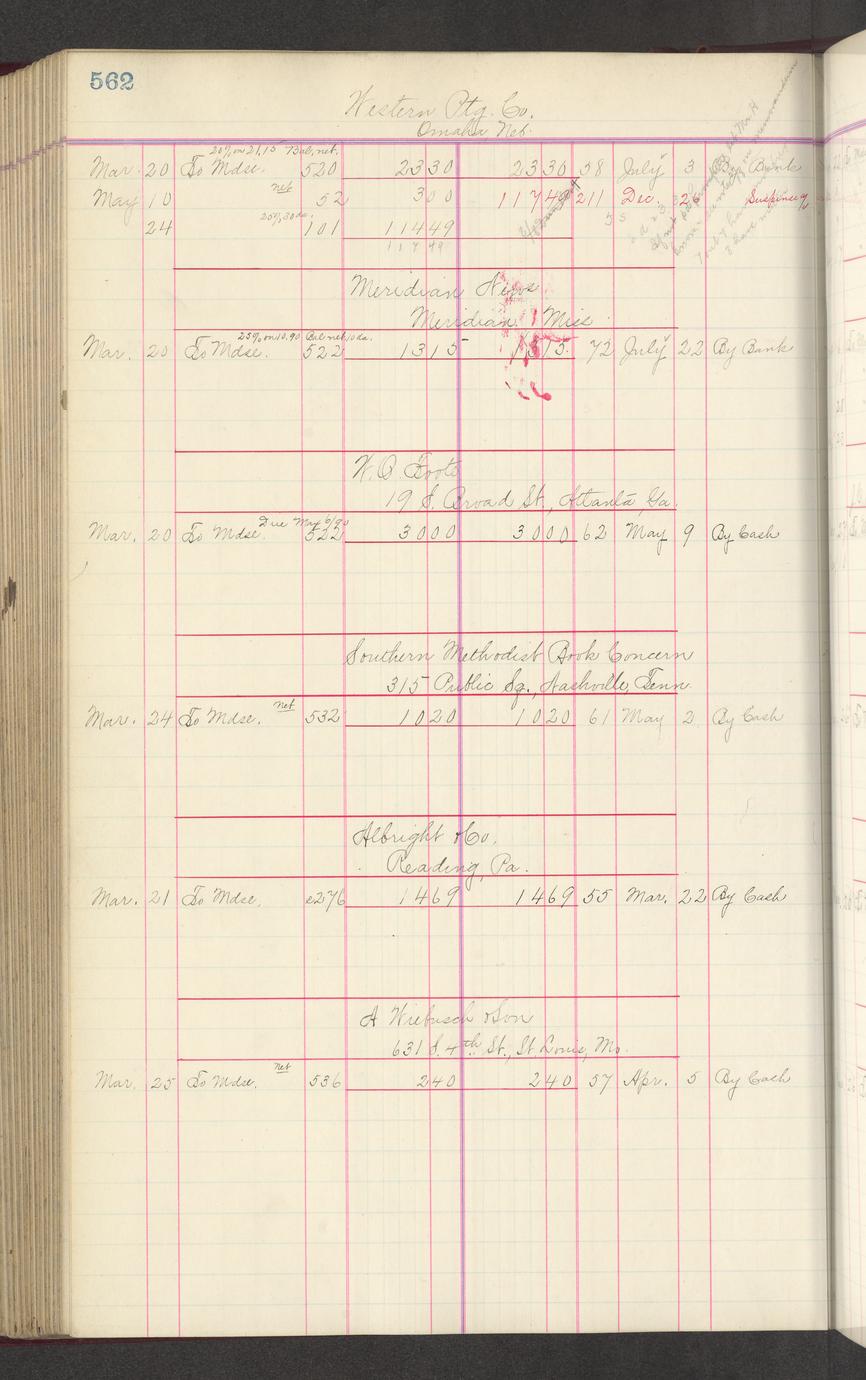 562
Western Ptg. Co.
Omaha Neb.
20% on 21.15 Bal. net.
Mar. 20 To Mdse. 520 2330 2330 58 July 3 By Bank
May 10 net 52 300 11749 211 Dec. 26 Suspense
24 25%, 30 da. 101 11449
11749
Meridian News
Meridian, Miss.
25% on 10.90 Bal. net 10 da.
Mar. 20 To Mdse. 522 1315 1315 72 July 22 By Bank
W. B. Foote
19 S. Broad St., Atlanta, Ga.
Due May 6/90
Mar. 20 To Mdse. 522 3000 3000 62 May 9 By Cash
Southern Methodist Book Concern
315 Public Sq., Nashville, Tenn.
Mar. 24 To Mdse. net 532 1020 1020 61 May 2 By Cash
Albright & Co.
Reading, Pa.
Mar. 21 To Mdse. e276 1469 1469 55 Mar. 22 By Cash
A Wiebusch & Son
631 S. 4th St., St Louis, Mo.
Mar. 25 To Mdse. net 536 240 240 57 Apr. 5 By Cash